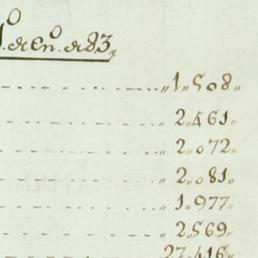 1º de Enº de 83,
„1„508„
2„461„
2„072„
2„081„
1„977„
2„569„
27„416„